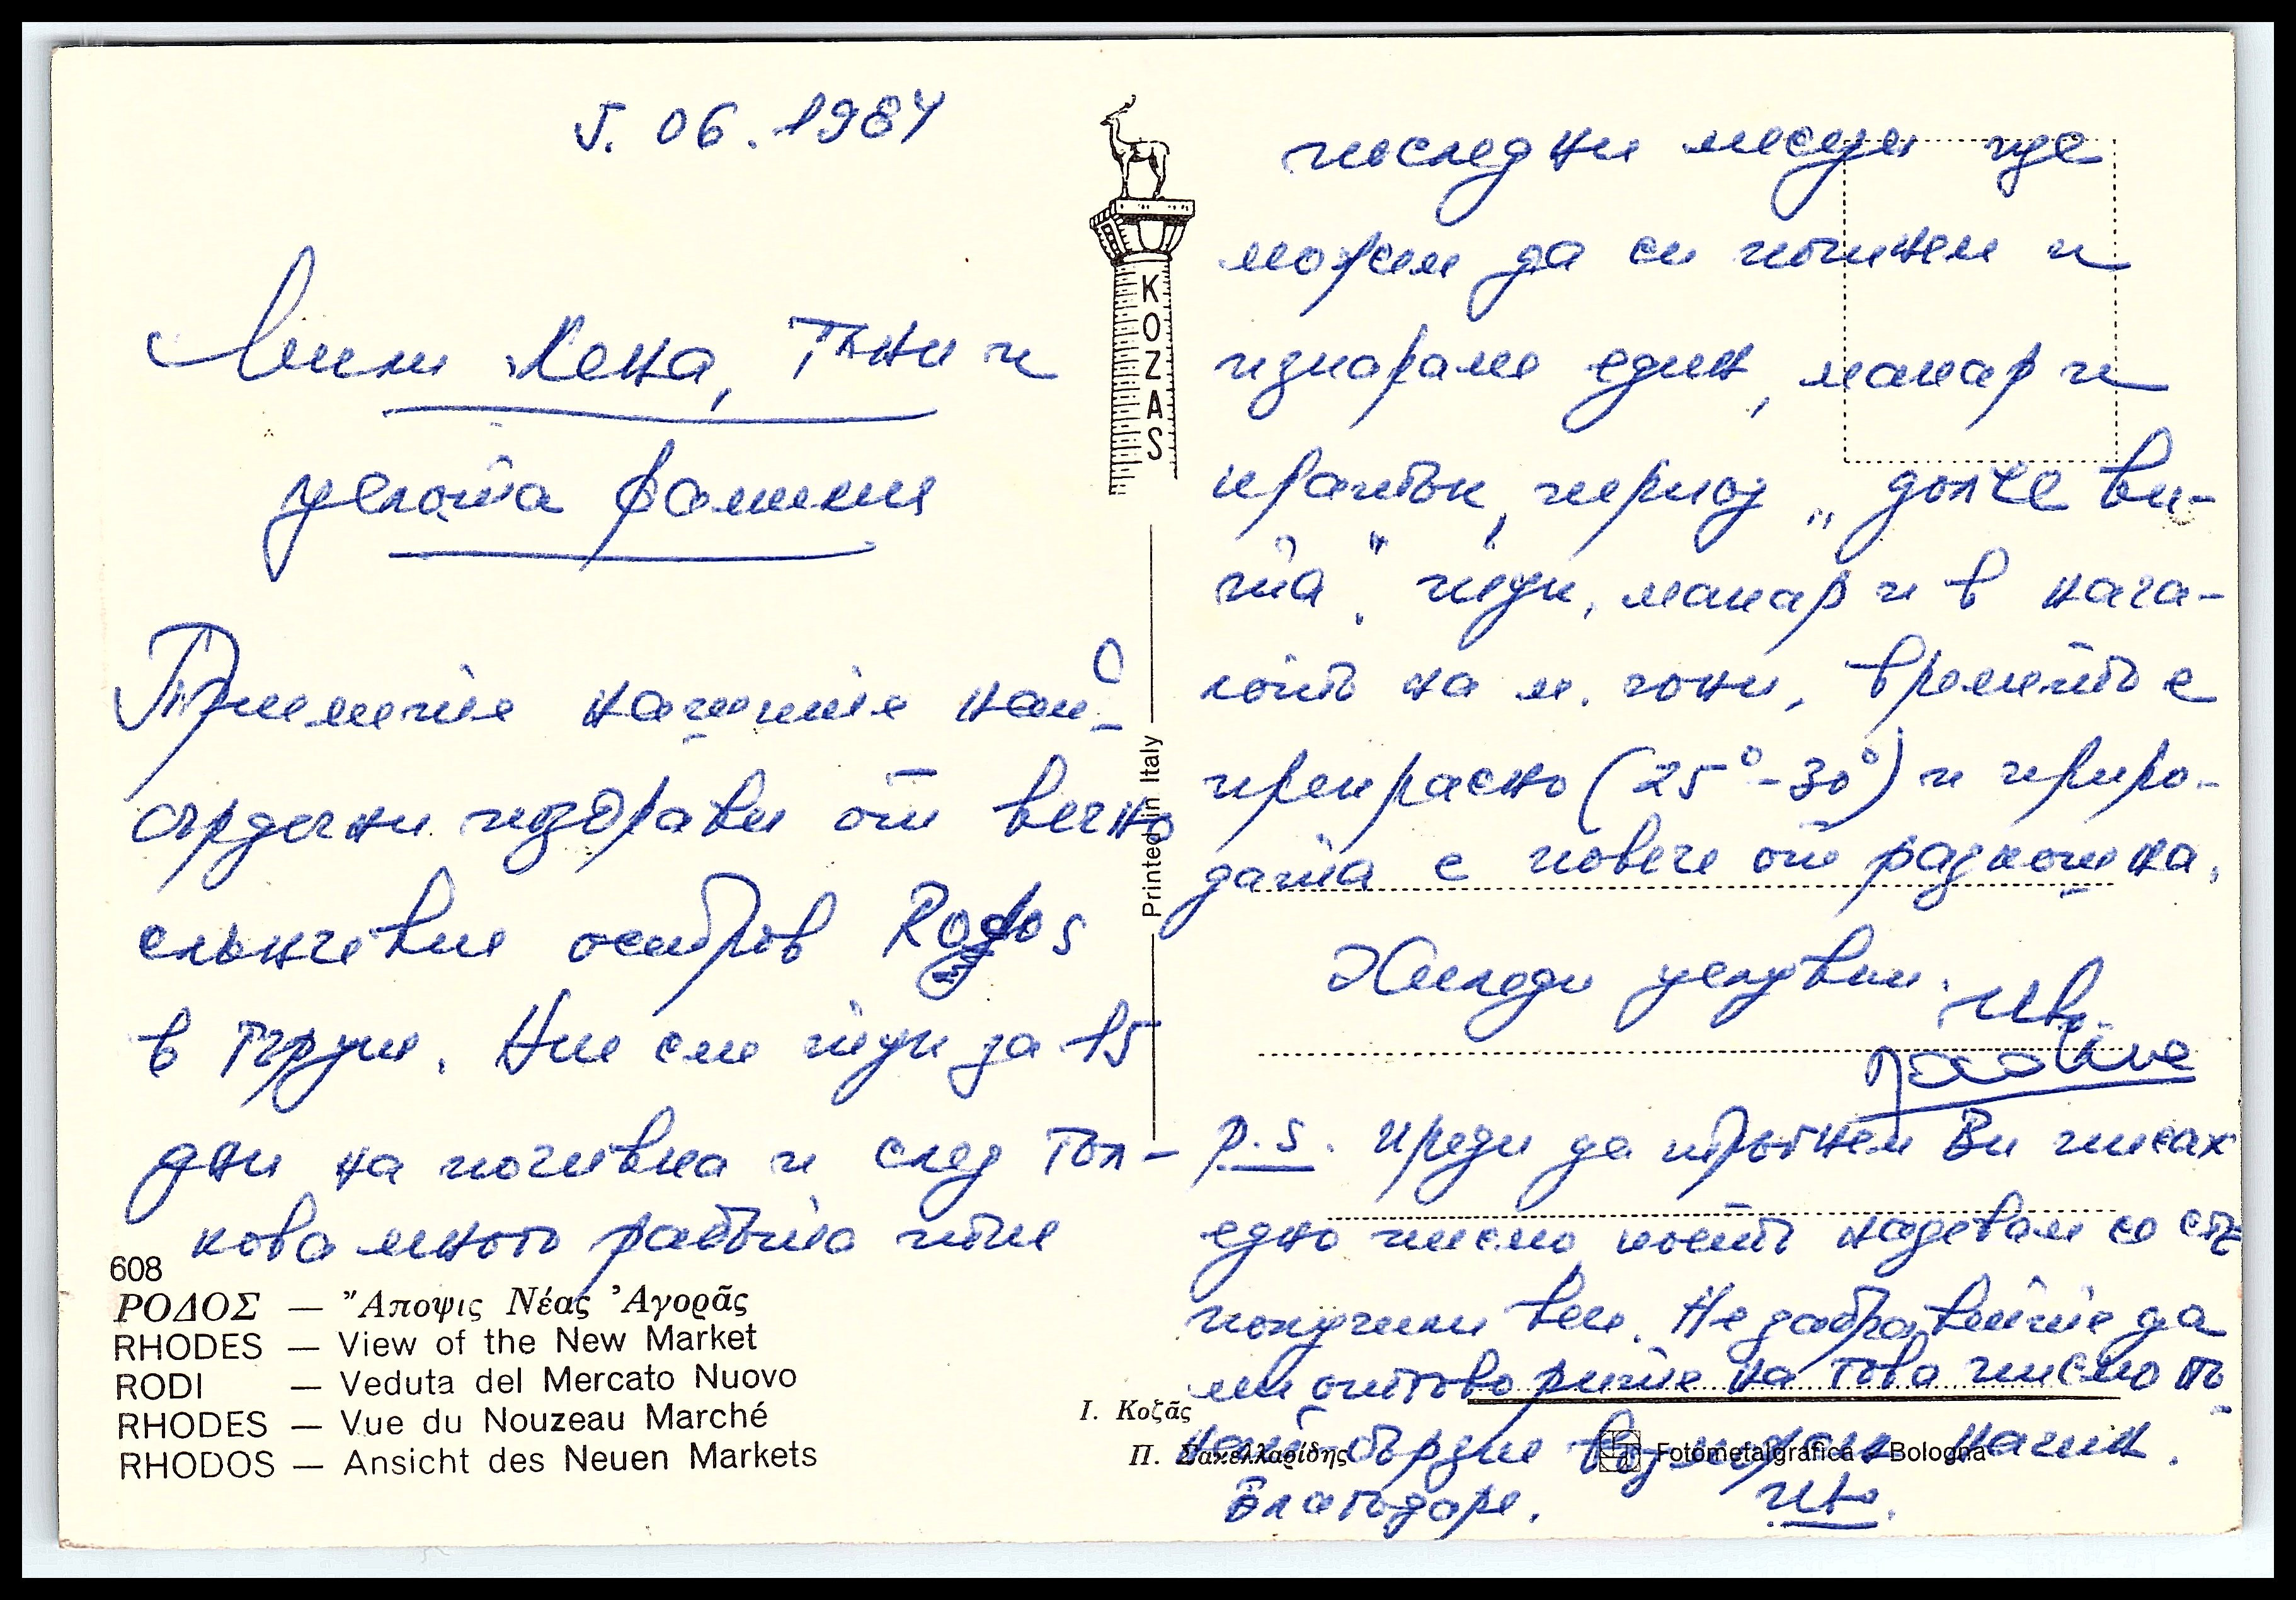 5. 06. 1984
Мили Лена, Тъни и
цялата фамилия
Приемете нашите най-
сърдечни поздрави от вечно
слънчевия остров Rodos
в Гърция. Ние сме тук за 15
дни на почивка и след тол-
кова много работа тие
последни месеци ще
можем да си починем и
изкараме един, макар и
кратък, период „долче ви-
та". Тук, макар и в нача-
лото на м. юни, времето е
прекрасно (25°-30°) и приро-
дата е повече от разкошна.
Хиляди целувки.
Ив.
p.s. Преди да тръгнем Ви писах
едно писмо, което надевам се сте
получили вече. Не забравяйте да
ми отговорите на това писмо по
най-бърzия възможен начин.
Благодаря. Ив.
KOZAS
Printed in Italy
608
ΡΟΔΟΣ — Ἄποψις Νέας Ἀγορᾶς
RHODES — View of the New Market
RODI — Veduta del Mercato Nuovo
RHODES — Vue du Nouzeau Marché
RHODOS — Ansicht des Neuen Markets
Ι. Κοζᾶς
Π. Σακελλαρίδης
Fotometalgrafica - Bologna